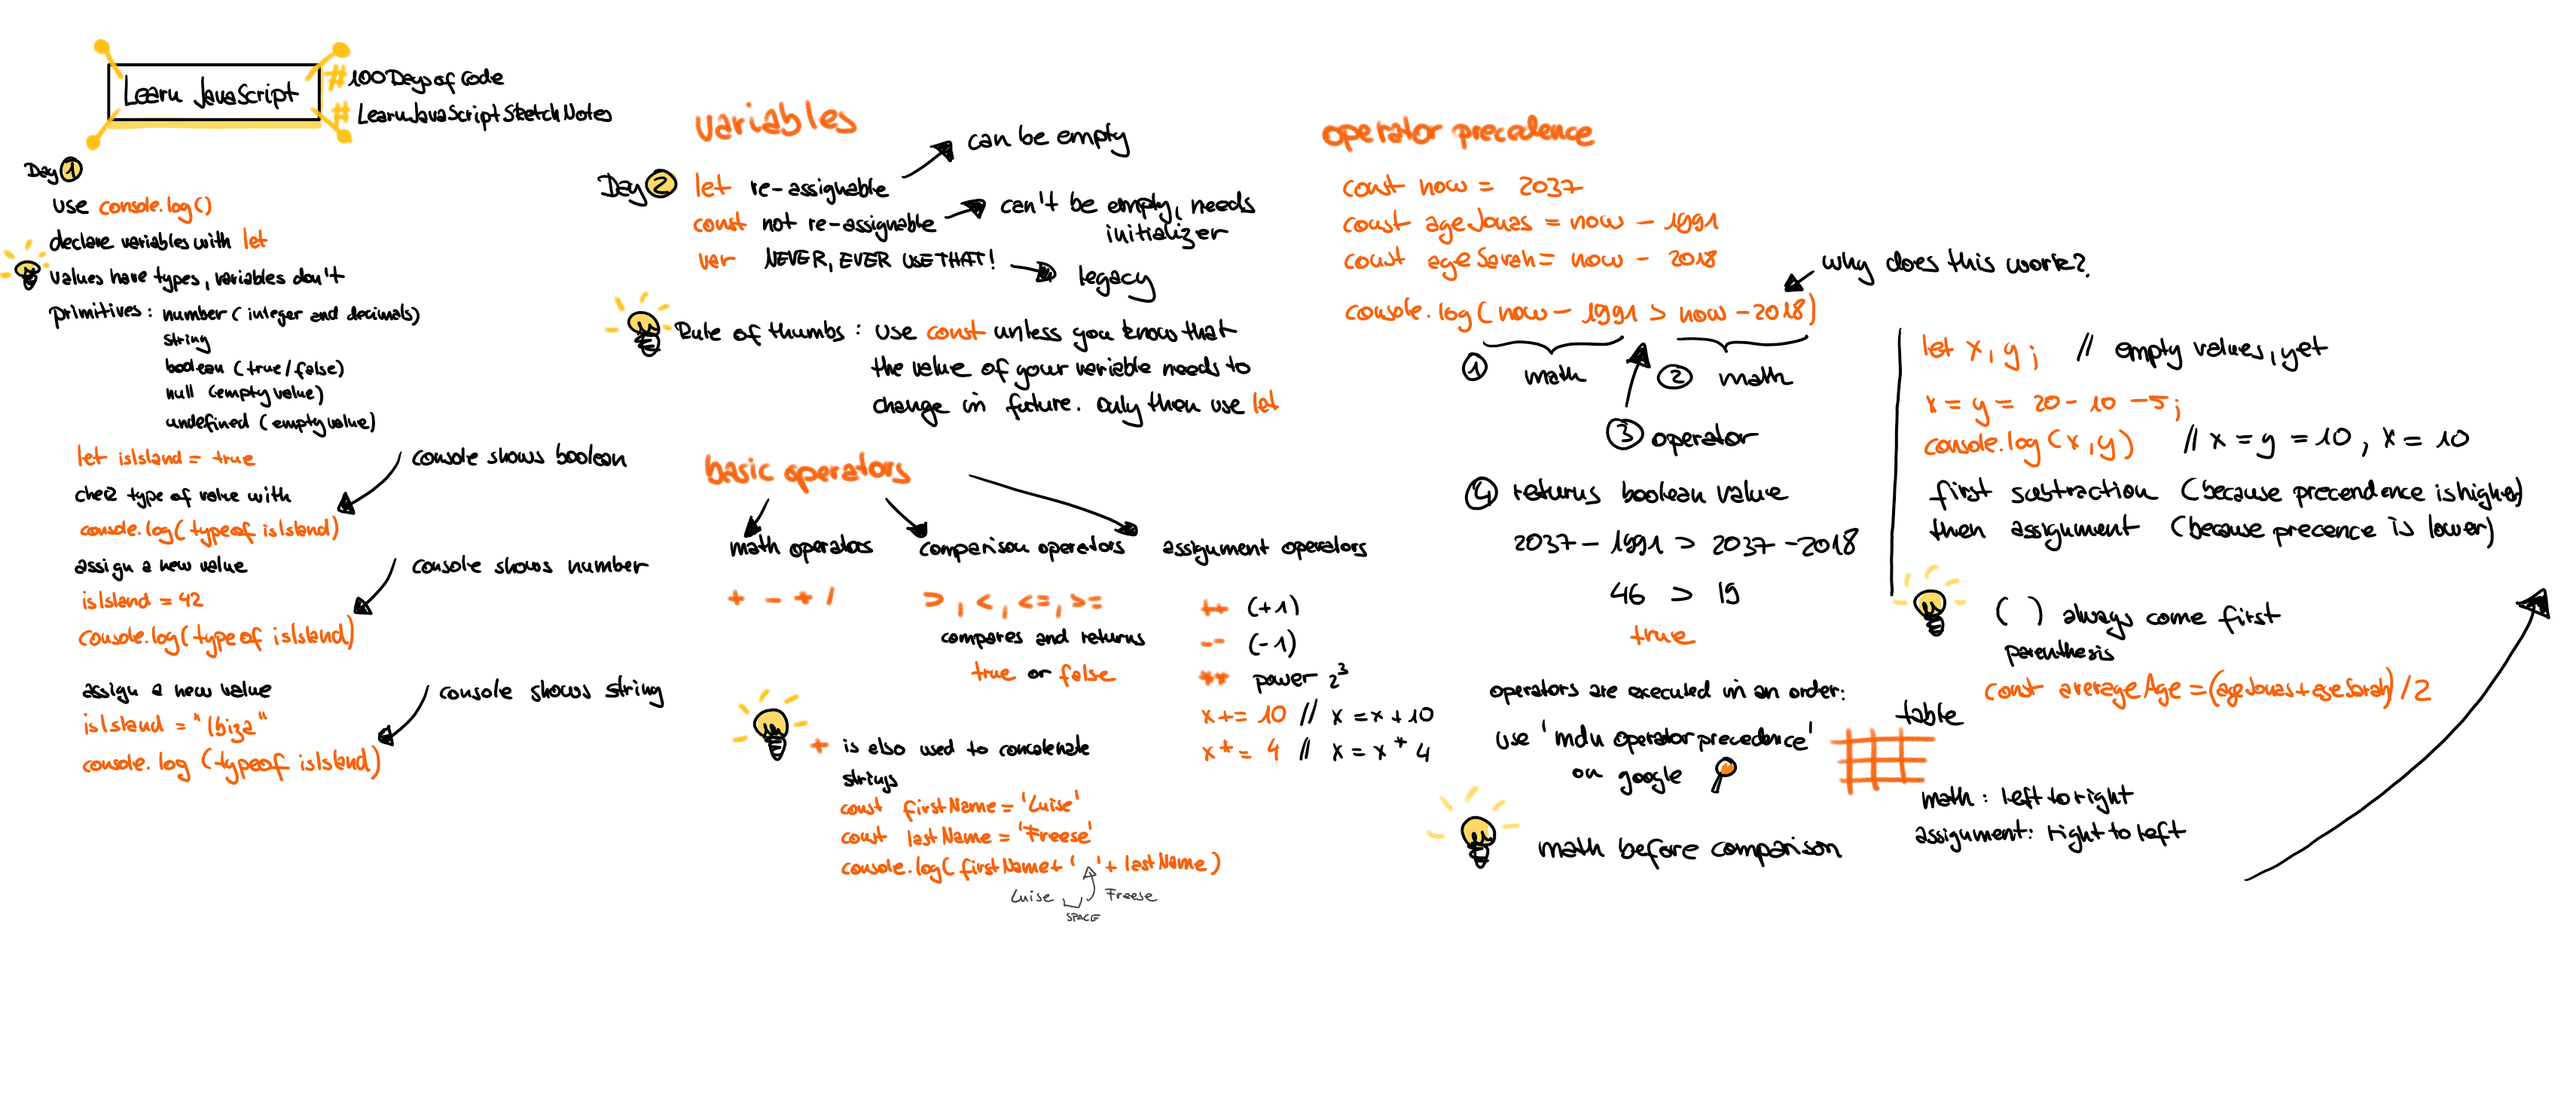 Learn JavaScript
#100DaysofCode
#LearnJavaScriptSketchNotes
Day 1
use console.log()
declare variables with let
values have types, variables don't
primitives: number (integer and decimals)
string
boolean (true/false)
null (empty value)
undefined (empty value)
let isIsland = true
console shows boolean
check type of value with
console.log(typeof isIsland)
assign a new value
console shows number
isIsland = 42
console.log(typeof isIsland)
assign a new value
console shows string
isIsland = "Ibiza"
console.log (typeof isIsland)
variables
Day 2
let re-assignable
can be empty
const not re-assignable
can't be empty, needs
initializer
var NEVER, EVER USE THAT!
legacy
Rule of thumbs: use const unless you know that
the value of your variable needs to
change in future. Only then use let
basic operators
math operators
+ - * /
comparison operators
>, <, <=, >=
compares and returns
true or false
assignment operators
++ (+1)
-- (-1)
** power 2³
x += 10 // x = x + 10
x *= 4 // x = x * 4
+ is also used to concatenate
strings
const firstName = 'Luise'
const lastName = 'Freese'
console.log(firstName + ' ' + lastName)
Luise Freese
SPACE
operator precedence
const now = 2037
const ageJonas = now - 1991
const ageSarah = now - 2018
why does this work?
console.log(now - 1991 > now - 2018)
1 math
2 math
3 operator
4 returns boolean value
2037 - 1991 > 2037 - 2018
46 > 19
true
operators are executed in an order:
use 'mdn operator precedence'
on google
table
math before comparison
let x, y; // empty values, yet
x = y = 20 - 10 - 5;
console.log(x, y) // x = y = 10, x = 10
first subtraction (because precendence is higher)
then assignment (because precence is lower)
( ) always come first
parenthesis
const averageAge = (ageJonas + ageSarah) / 2
math: left to right
assignment: right to left